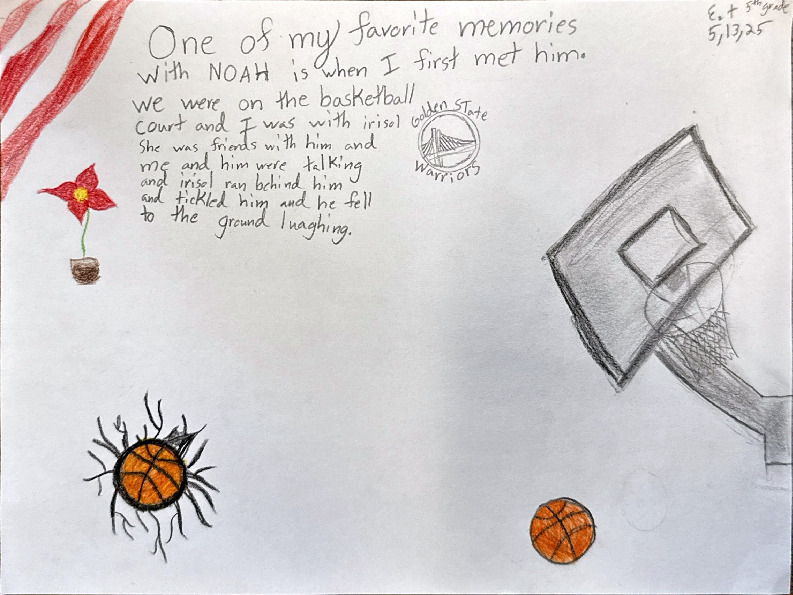 One of my favorite memories
with NOAH is when I first met him.
we were on the basketball
court and I was with irisol
She was friends with him and
me and him were talking
and irisol ran behind him
and tickled him and he fell
to the ground luaghing.
Golden State
Warriors
E.t 5th grade
5,13,25